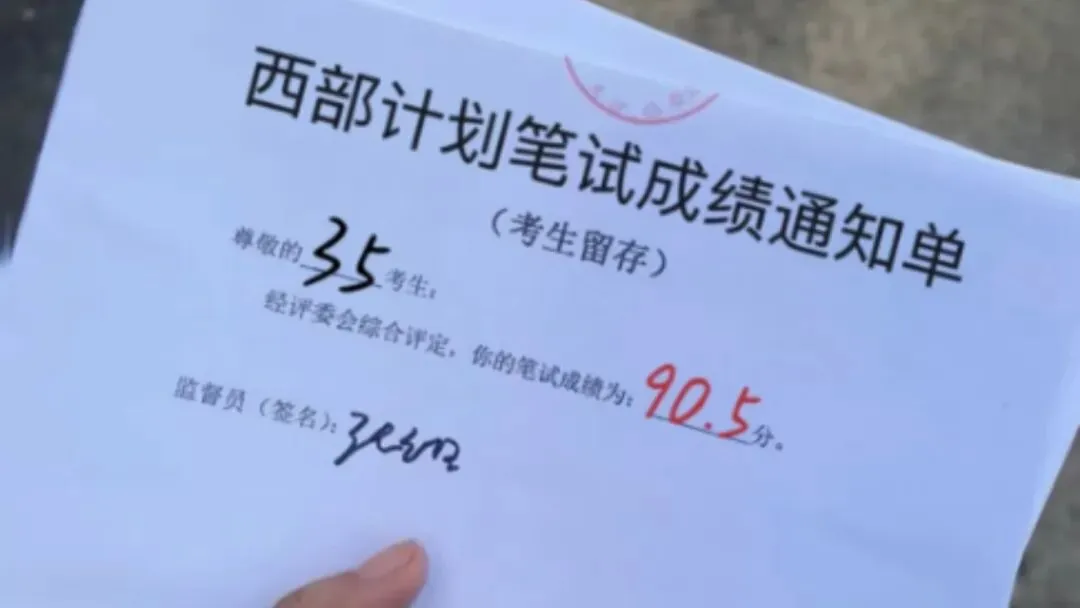 西部计划笔试成绩通知单
（考生留存）
尊敬的 35 考生：
经评委会综合评定，你的笔试成绩为：90.5分。
监督员（签名）：